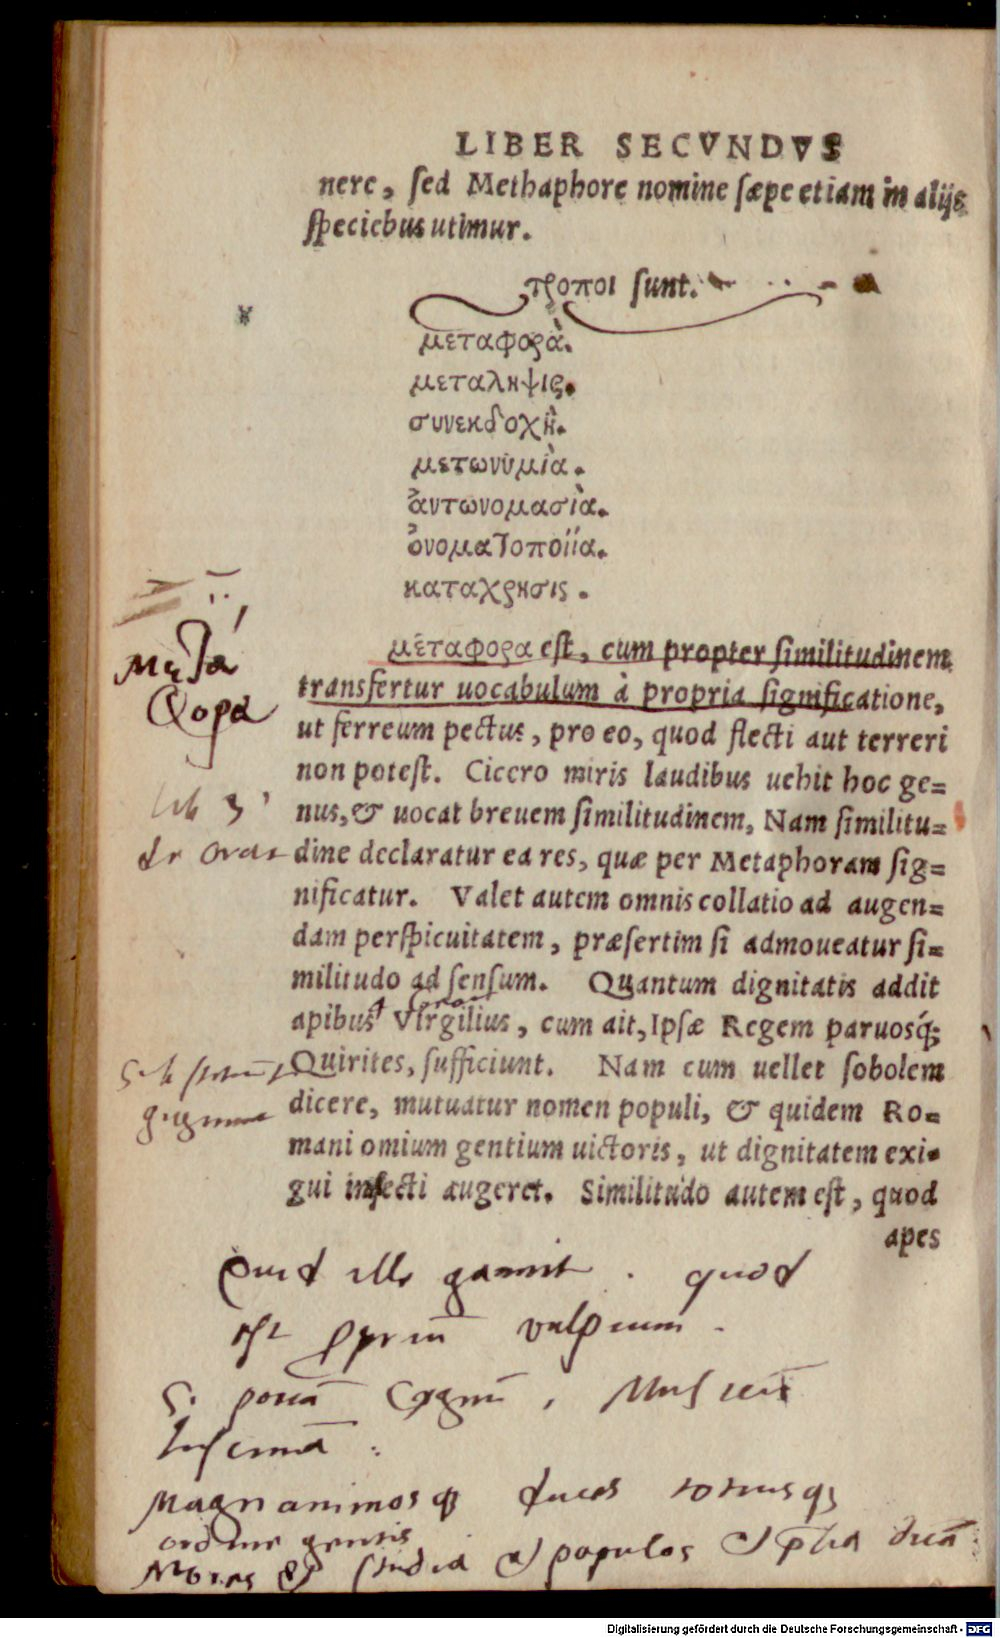 LIBER SECVNDVS
nere, sed Methaphore nomine sæpe etiam in alijs
speciebus utimur.
τροποι sunt.
μεταφορὰ.
μεταληψις.
συνεκδοχὴ.
μετωνυμὶα.
ἀντωνομασὶα.
ὀνοματοποιΐα.
καταχρησις.
μεταφορα est, cum propter similitudinem
transfertur uocabulum à propria significatione,
ut ferreum pectus, pro eo, quod flecti aut terreri
non potest. Cicero miris laudibus uehit hoc ge=
nus, & uocat breuem similitudinem, Nam similitu=
dine declaratur ea res, quæ per Metaphoram sig=
nificatur. Valet autem omnis collatio ad augen=
dam perspicuitatem, præsertim si admoueatur si=
militudo ad sensum. Quantum dignitatis addit
apibus Virgilius, cum ait, Ipsæ Regem paruosq́;
Quirites, sufficiunt. Nam cum uellet sobolem
dicere, mutuatur nomen populi, & quidem Ro=
mani omium gentium uictoris, ut dignitatem exi=
gui insecti augeret. Similitudo autem est, quod
apes
μεταφορα
lib 3
de orat
Quid ille gannit . quod
est vulpium .
Magnanimosq duces totiusq
ordine gentis
Mores & studia et populos et